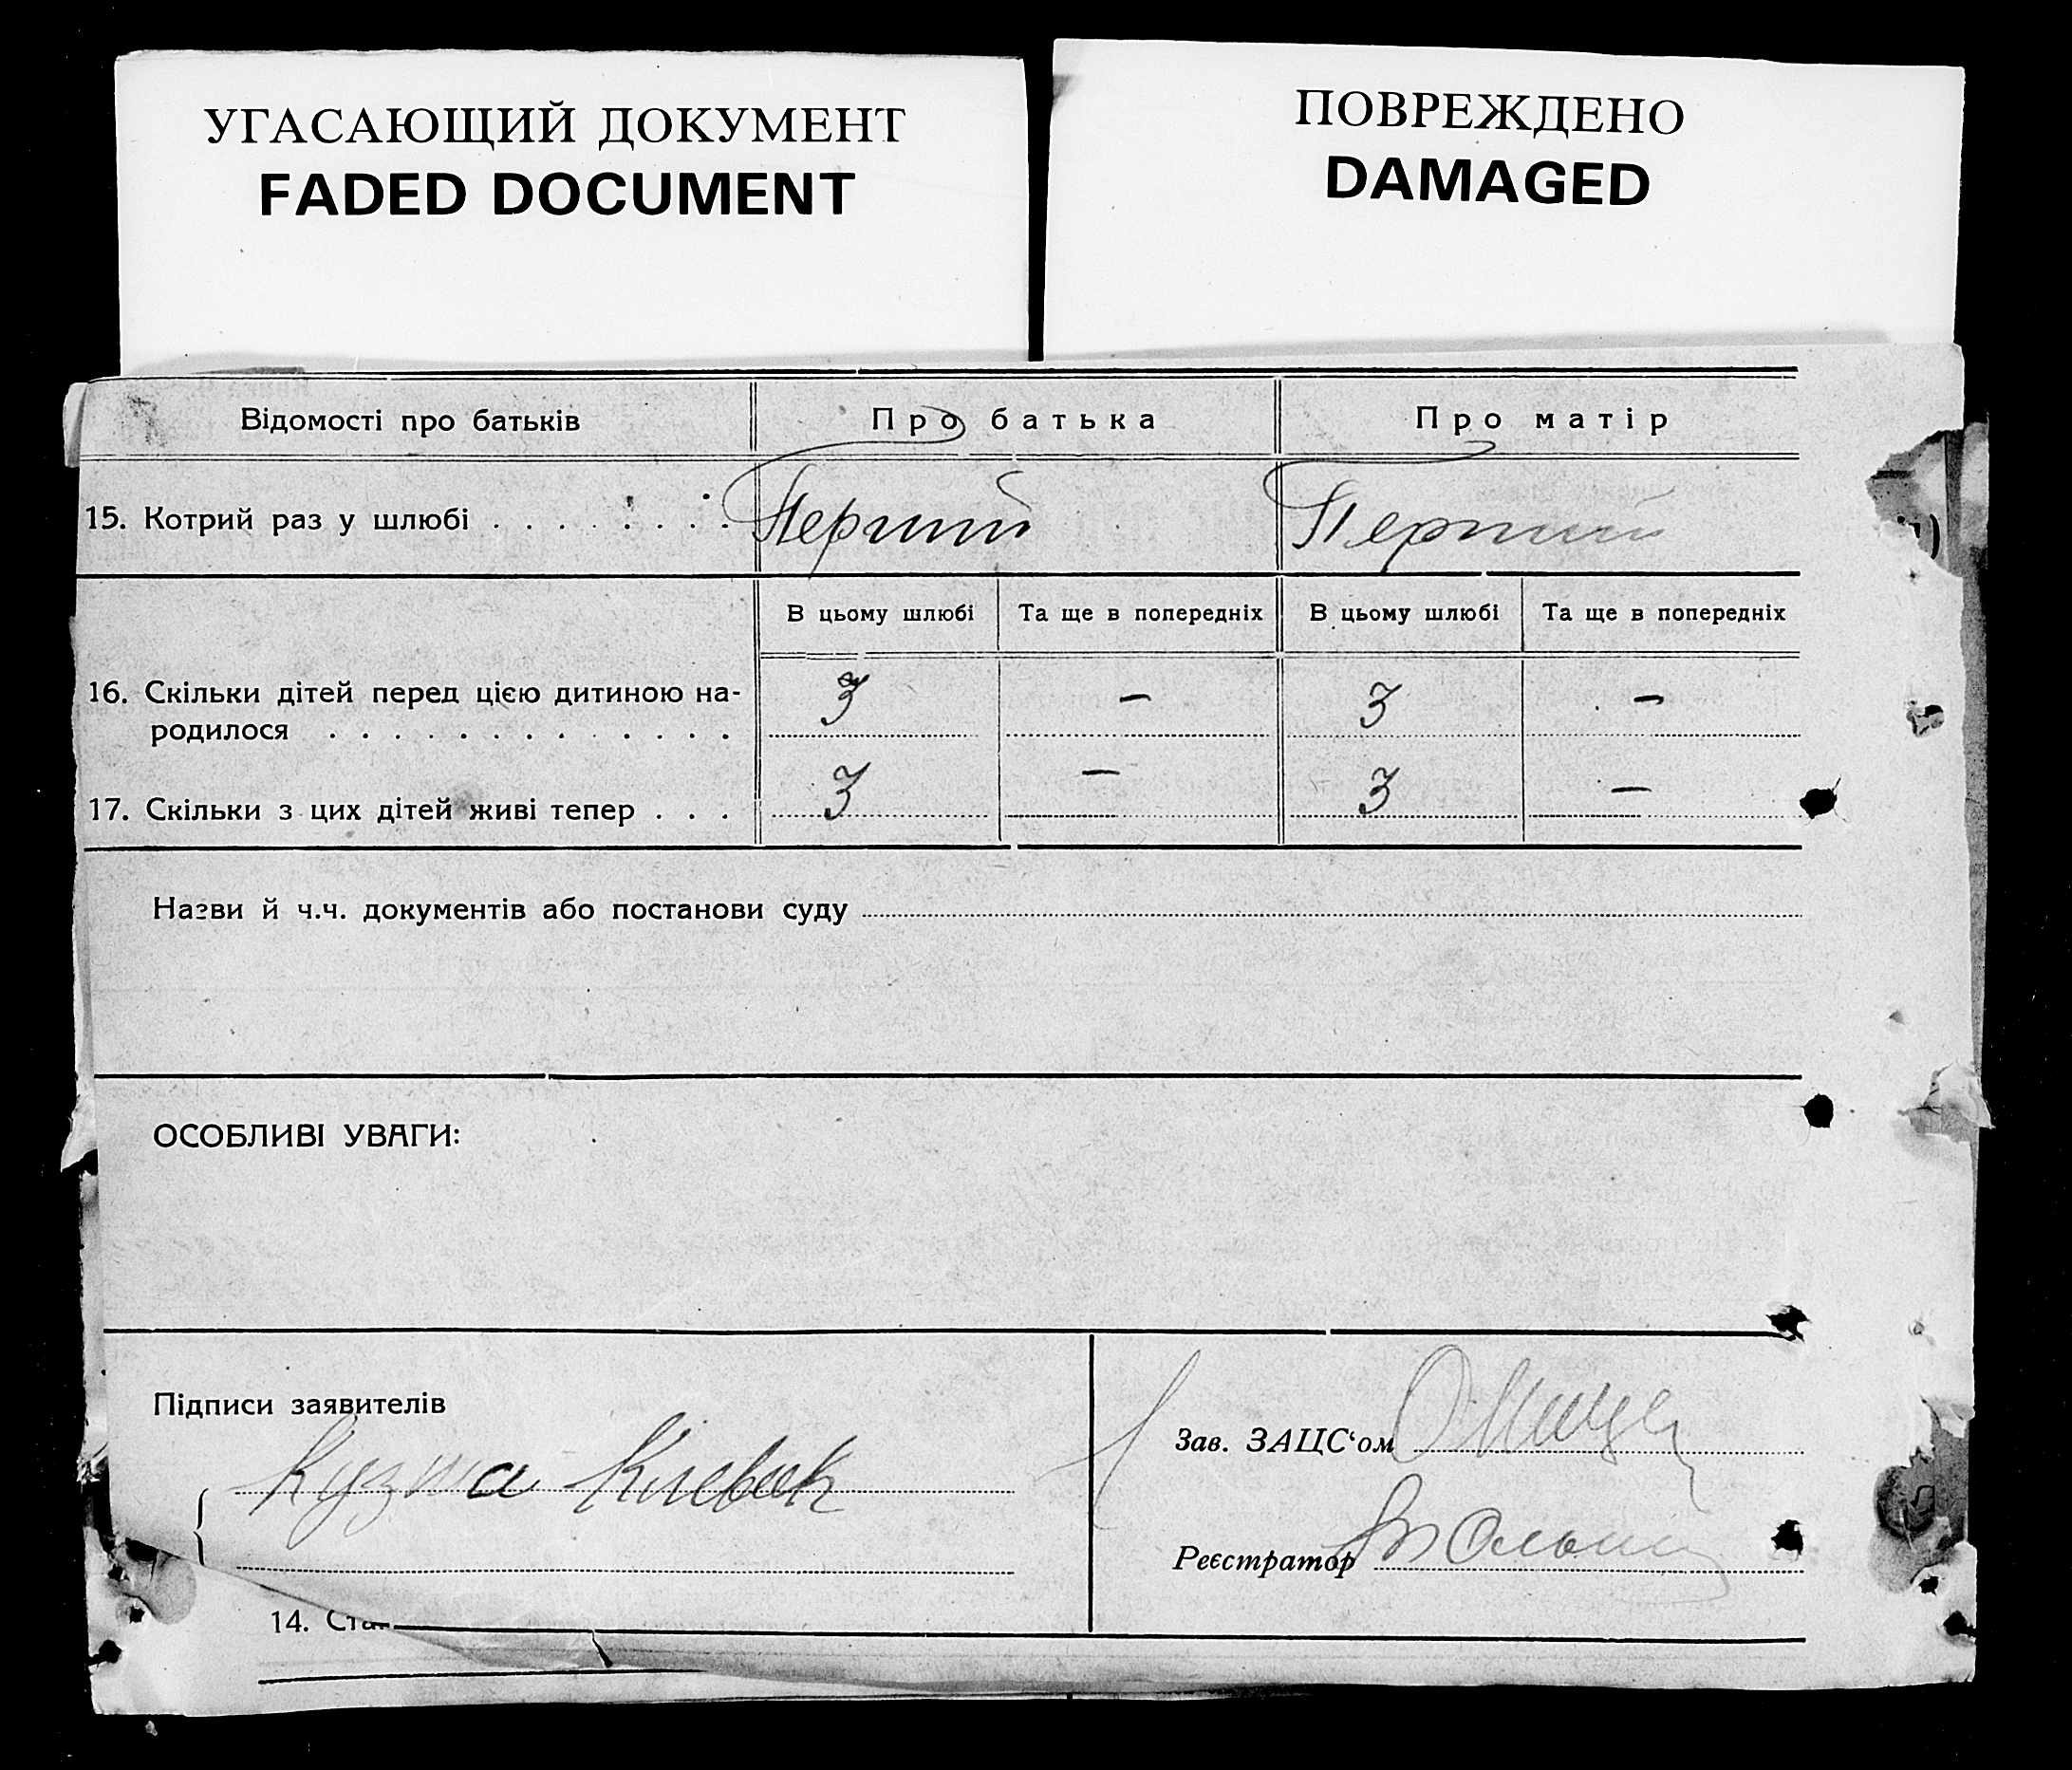 УГАСАЮЩИЙ ДОКУМЕНТ
FADED DOCUMENT
ПОВРЕЖДЕНО
DAMAGED
Відомості про батьків Про батька Про матір
15. Котрий раз у шлюбі . . . . . . . . Перший Перший
В цьому шлюбі Та ще в попередніх В цьому шлюбі Та ще в попередніх
16. Скільки дітей перед цією дитиною на-
родилося . . . . . . . . . . . . . . 3 — 3 —
17. Скільки з цих дітей живі тепер . . . 3 — 3 —
Назви й ч.ч. документів або постанови суду
ОСОБЛИВІ УВАГИ:
Підписи заявителів
Кузма
Зав. ЗАЦС‘ом
Реєстратор
14. Стан